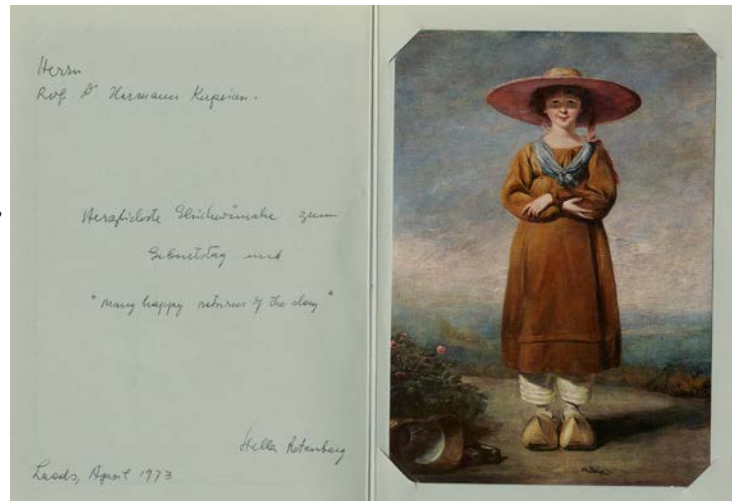 Herrn
Prof. Dr Hermann Kuprian.
Herzlichste Glückwünsche zum
Geburtstag und
"Many happy returns of the day"
Stella Rotenberg
Leeds, April 1973